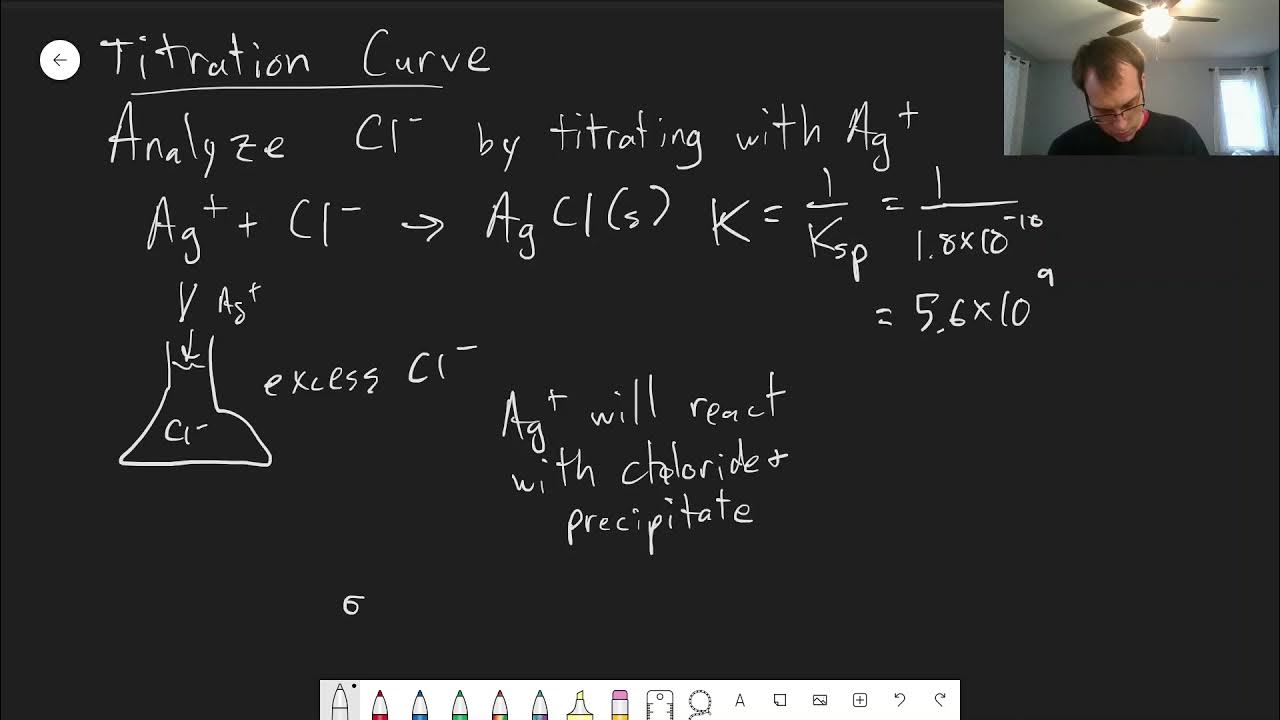 Titration Curve
Analyze Cl⁻ by titrating with Ag⁺
Ag⁺ + Cl⁻ → AgCl(s) K = 1/Ksp = 1/1.8×10⁻¹⁰
= 5.6×10⁹
Ag⁺
excess Cl⁻
Cl⁻
Ag⁺ will react
with chloride &
precipitate
A